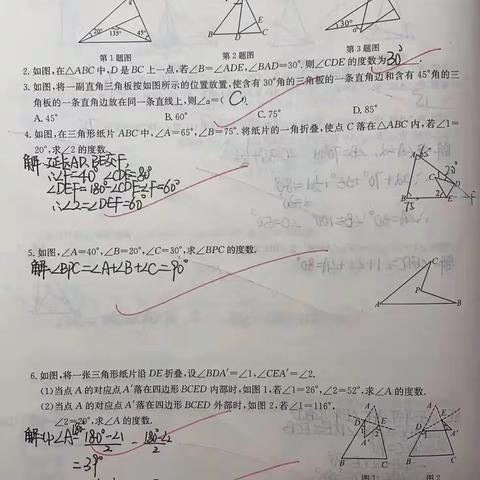 20° 135° 45°
30°
第1题图 第2题图 第3题图
2. 如图,在△ABC中,D是BC上一点,若∠B=∠ADE,∠BAD=30°.则∠CDE的度数为30°.
3. 如图,将一副直角三角板按如图所示的位置放置,使含有30°角的三角板的一条直角边和含有45°角的三
角板的一条直角边放在同一条直线上,则∠α=( C )
A. 45° B. 60° C. 75° D. 85°
4. 如图,在三角形纸片ABC中,∠A=65°,∠B=75°.将纸片的一角折叠,使点C落在△ABC内,若∠1=
20°,求∠2的度数.
解:延长AD,BE交F,
∴∠F=40° ∠CDF=80°
∠DEF=180°-∠CDF-∠F=60°
∴∠2=∠DEF=60°
5. 如图,∠A=40°,∠B=20°,∠C=30°,求∠BPC的度数.
解:∠BPC=∠A+∠B+∠C=90°
C
P
A B
6. 如图,将一张三角形纸片沿DE折叠,设∠BDA′=∠1,∠CEA′=∠2.
(1)当点A的对应点A′落在四边形BCED内部时,如图1,若∠1=26°,∠2=52°,求∠A的度数.
(2)当点A的对应点A′落在四边形BCED外部时,如图2,若∠1=116°,
∠2=20°,求∠A的度数.
解:(1)∠A=180°-(180°-∠1)/2-(180°-∠2)/2
=39°
图1 图2